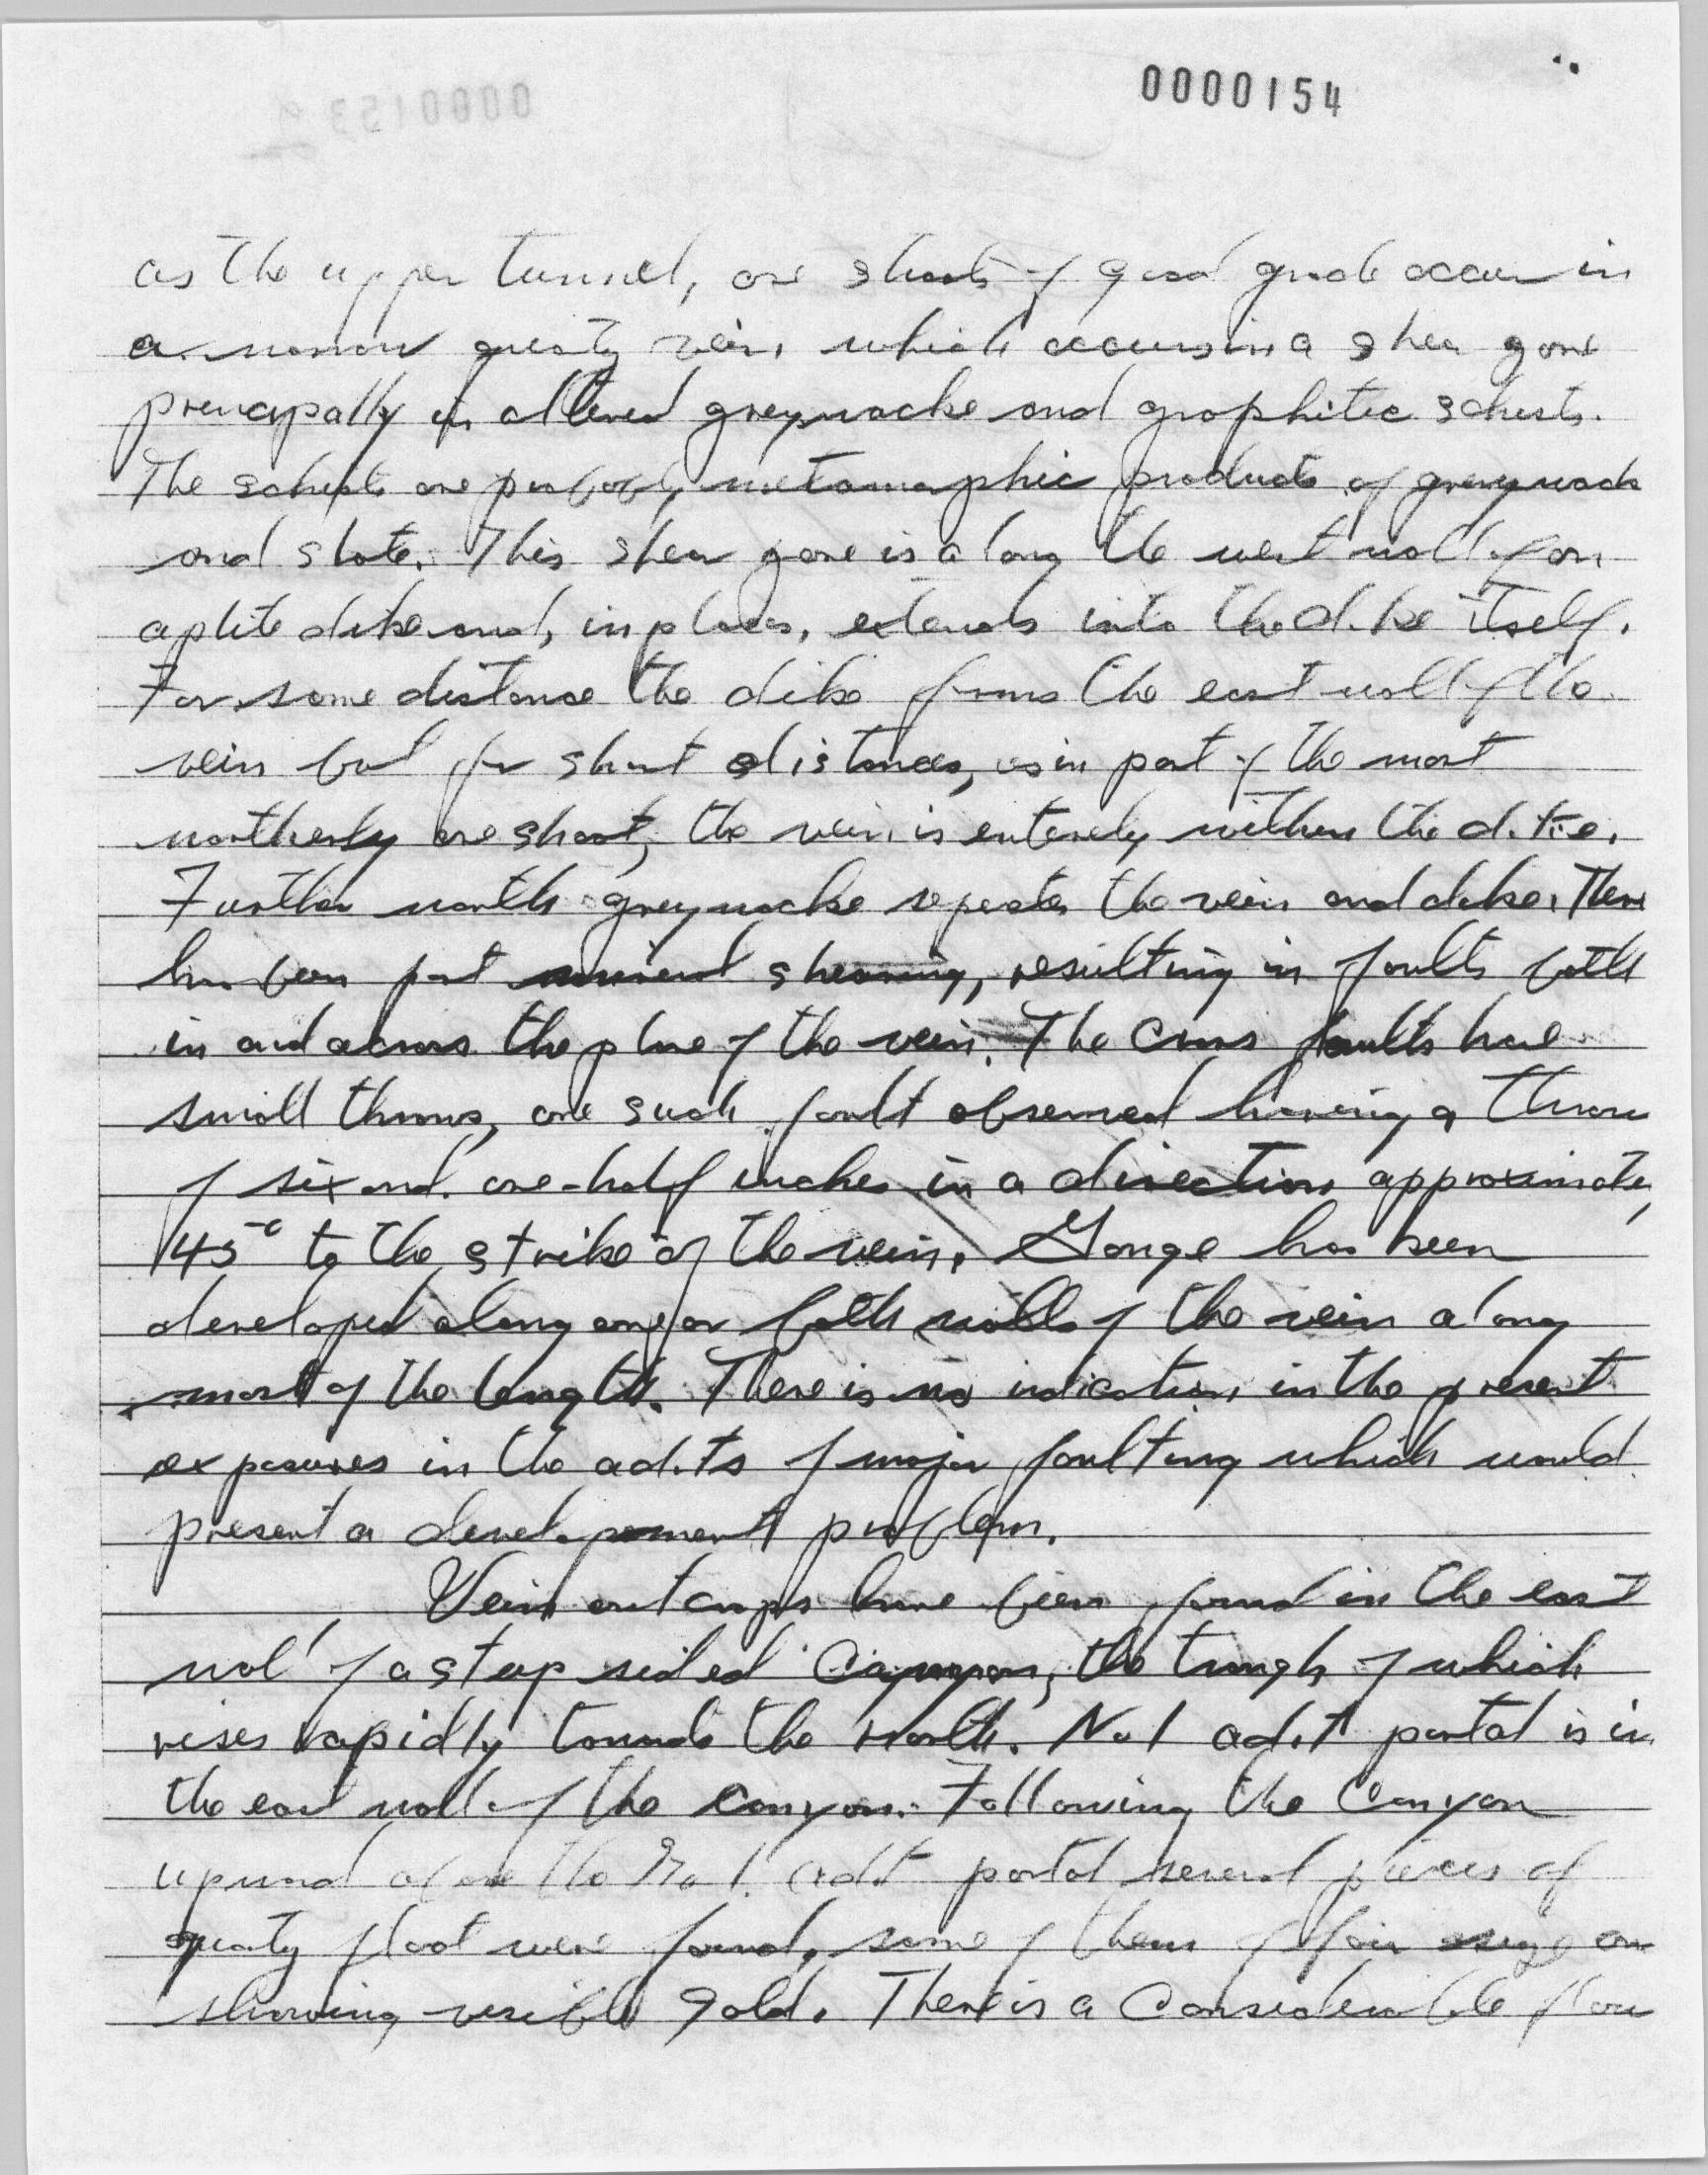 0000154
0000153
as the upper tunnel, ore shoots of good grade occur in
a narrow quartz vein which occurs in a shear zone
principally in altered greywacke and graphitic schists.
The schists are probably metamorphic products of greywacke
and slate. This shear zone is along the west wall of an
aplite dike and, in places, extends into the dike itself.
For some distance the dike forms the east wall of the
vein but for short distances, as in part of the most
northerly ore shoot, the vein is entirely within the dike.
Further north greywacke separates the vein and dike. There
has been post mineral shearing, resulting in faults both
in and across the plane of the vein. The cross faults have
small throws, one such fault observed having a throw
of six and one-half inches in a direction approximately
45° to the strike of the vein. Gouge has been
developed along one or both walls of the vein along
most of the length. There is no indication in the present
exposures in the adits of major faulting which would
present a development problem.
Vein outcrops have been found in the east
wall of a steep sided canyon, the trough of which
rises rapidly towards the north. No 1 adit portal is in
the east wall of the canyon. Following the Canyon
upward above the No 1. adit portal several pieces of
quartz float were found, some of them of fair size and
showing visible gold. There is a Considerable flow